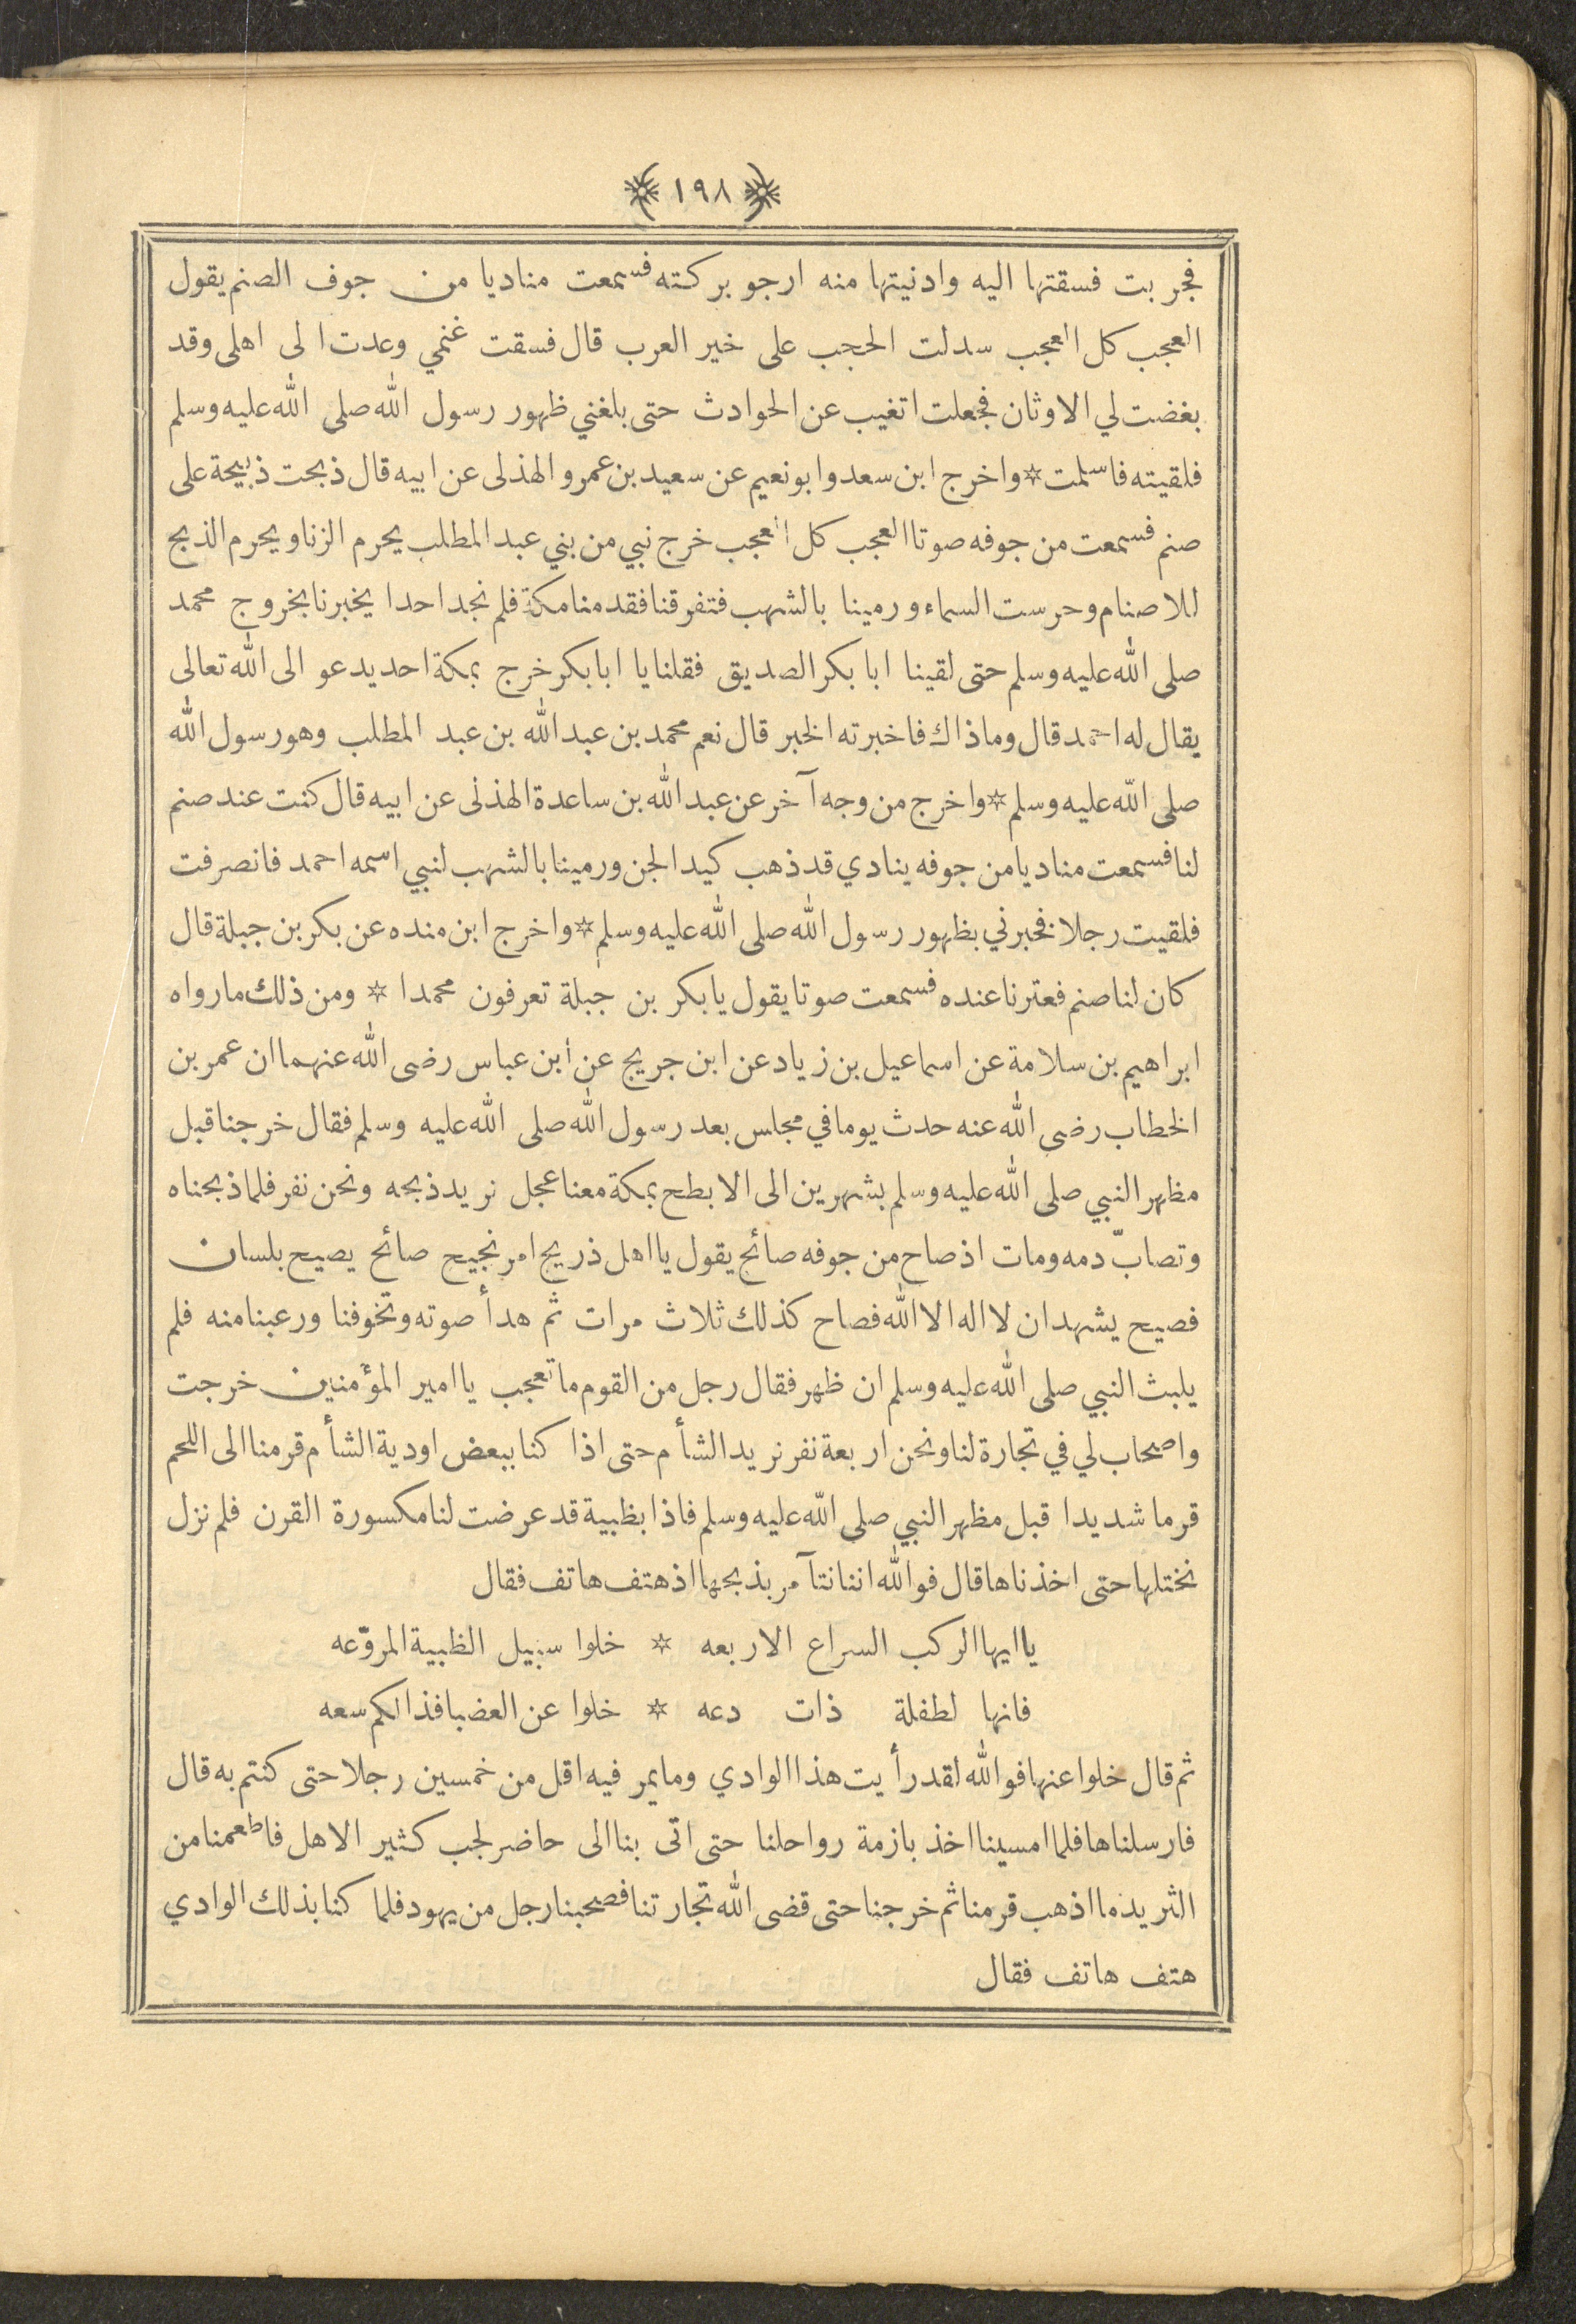 ﴿ ١٩٨ ﴾
فجربت فسقتها اليه وادنيتها منه ارجو بركته فسمعت مناديا من جوف الصنم يقول
العجب كل العجب سدلت الحجب على خير العرب قال فسقت غنمي وعدت الى اهلى وقد
بغضت لي الاوثان فجعلت اتغيب عن الحوادث حتى بلغني ظهور رسول الله صلى الله عليه وسلم
فلقيته فاسلمت * واخرج ابن سعد وابو نعيم عن سعيد بن عمرو الهذلى عن ابيه قال ذبحت ذبيحة على
صنم فسمعت من جوفه صوتا العجب كل العجب خرج نبي من بني عبد المطلب يحرم الزنا ويحرم الذبح
للاصنام وحرست السماء ورمينا بالشهب فتفرقنا فقدمنا مكة فلم نجد احدا يخبرنا بخروج محمد
صلى الله عليه وسلم حتى لقينا ابا بكر الصديق فقلنا يا ابا بكر خرج بمكة احد يدعو الى الله تعالى
يقال له احمد قال وما ذاك فاخبرته الخبر قال نعم محمد بن عبد الله بن عبد المطلب وهو رسول الله
صلى الله عليه وسلم * واخرج من وجه آخر عن عبد الله بن ساعدة الهذلى عن ابيه قال كنت عند صنم
لنا فسمعت مناديا من جوفه ينادي قد ذهب كيد الجن ورمينا بالشهب لنبي اسمه احمد فانصرفت
فلقيت رجلا فخبرني بظهور رسول الله صلى الله عليه وسلم * واخرج ابن منده عن بكر بن جبلة قال
كان لنا صنم فعترنا عنده فسمعت صوتا يقول يا بكر بن جبلة تعرفون محمدا * ومن ذلك ما رواه
ابراهيم بن سلامة عن اسماعيل بن زياد عن ابن جريج عن ابن عباس رضى الله عنهما ان عمر بن
الخطاب رضى الله عنه حدث يوما في مجلس بعد رسول الله صلى الله عليه وسلم فقال خرجنا قبل
مظهر النبي صلى الله عليه وسلم بشهرين الى الابطح بمكة معنا عجل نريد ذبحه ونحن نفر فلما ذبحناه
وتصابّ دمه ومات اذ صاح من جوفه صائح يقول يا اهل ذريح امر نجيح صائح يصيح بلسان
فصيح يشهد ان لا اله الا الله فصاح كذلك ثلاث مرات ثم هدأ صوته وتخوفنا ورعبنا منه فلم
يلبث النبي صلى الله عليه وسلم ان ظهر فقال رجل من القوم ما تعجب يا امير المؤمنين خرجت
واصحاب لي في تجارة لنا ونحن اربعة نفر نريد الشأم حتى اذا كنا ببعض اودية الشأم قرمنا الى اللحم
قرما شديدا قبل مظهر النبي صلى الله عليه وسلم فاذا بظبية قد عرضت لنا مكسورة القرن فلم نزل
نختلها حتى اخذناها قال فوالله اننا نتآمر بذبحها اذ هتف هاتف فقال
يا ايها الركب السراع الاربعه * خلوا سبيل الظبية المروّعه
فانها لطفلة ذات دعه * خلوا عن العضبا فذا لكم سعه
ثم قال خلوا عنها فوالله لقد رأيت هذا الوادي وما يمر فيه اقل من خمسين رجلا حتى كنتم به قال
فارسلناها فلما امسينا اخذ بازمة رواحلنا حتى اتى بنا الى حاضر لجب كثير الاهل فاطعمنا من
الثريد ما اذهب قرمنا ثم خرجنا حتى قضى الله تجارتنا فصحبنا رجل من يهود فلما كنا بذلك الوادي
هتف هاتف فقال